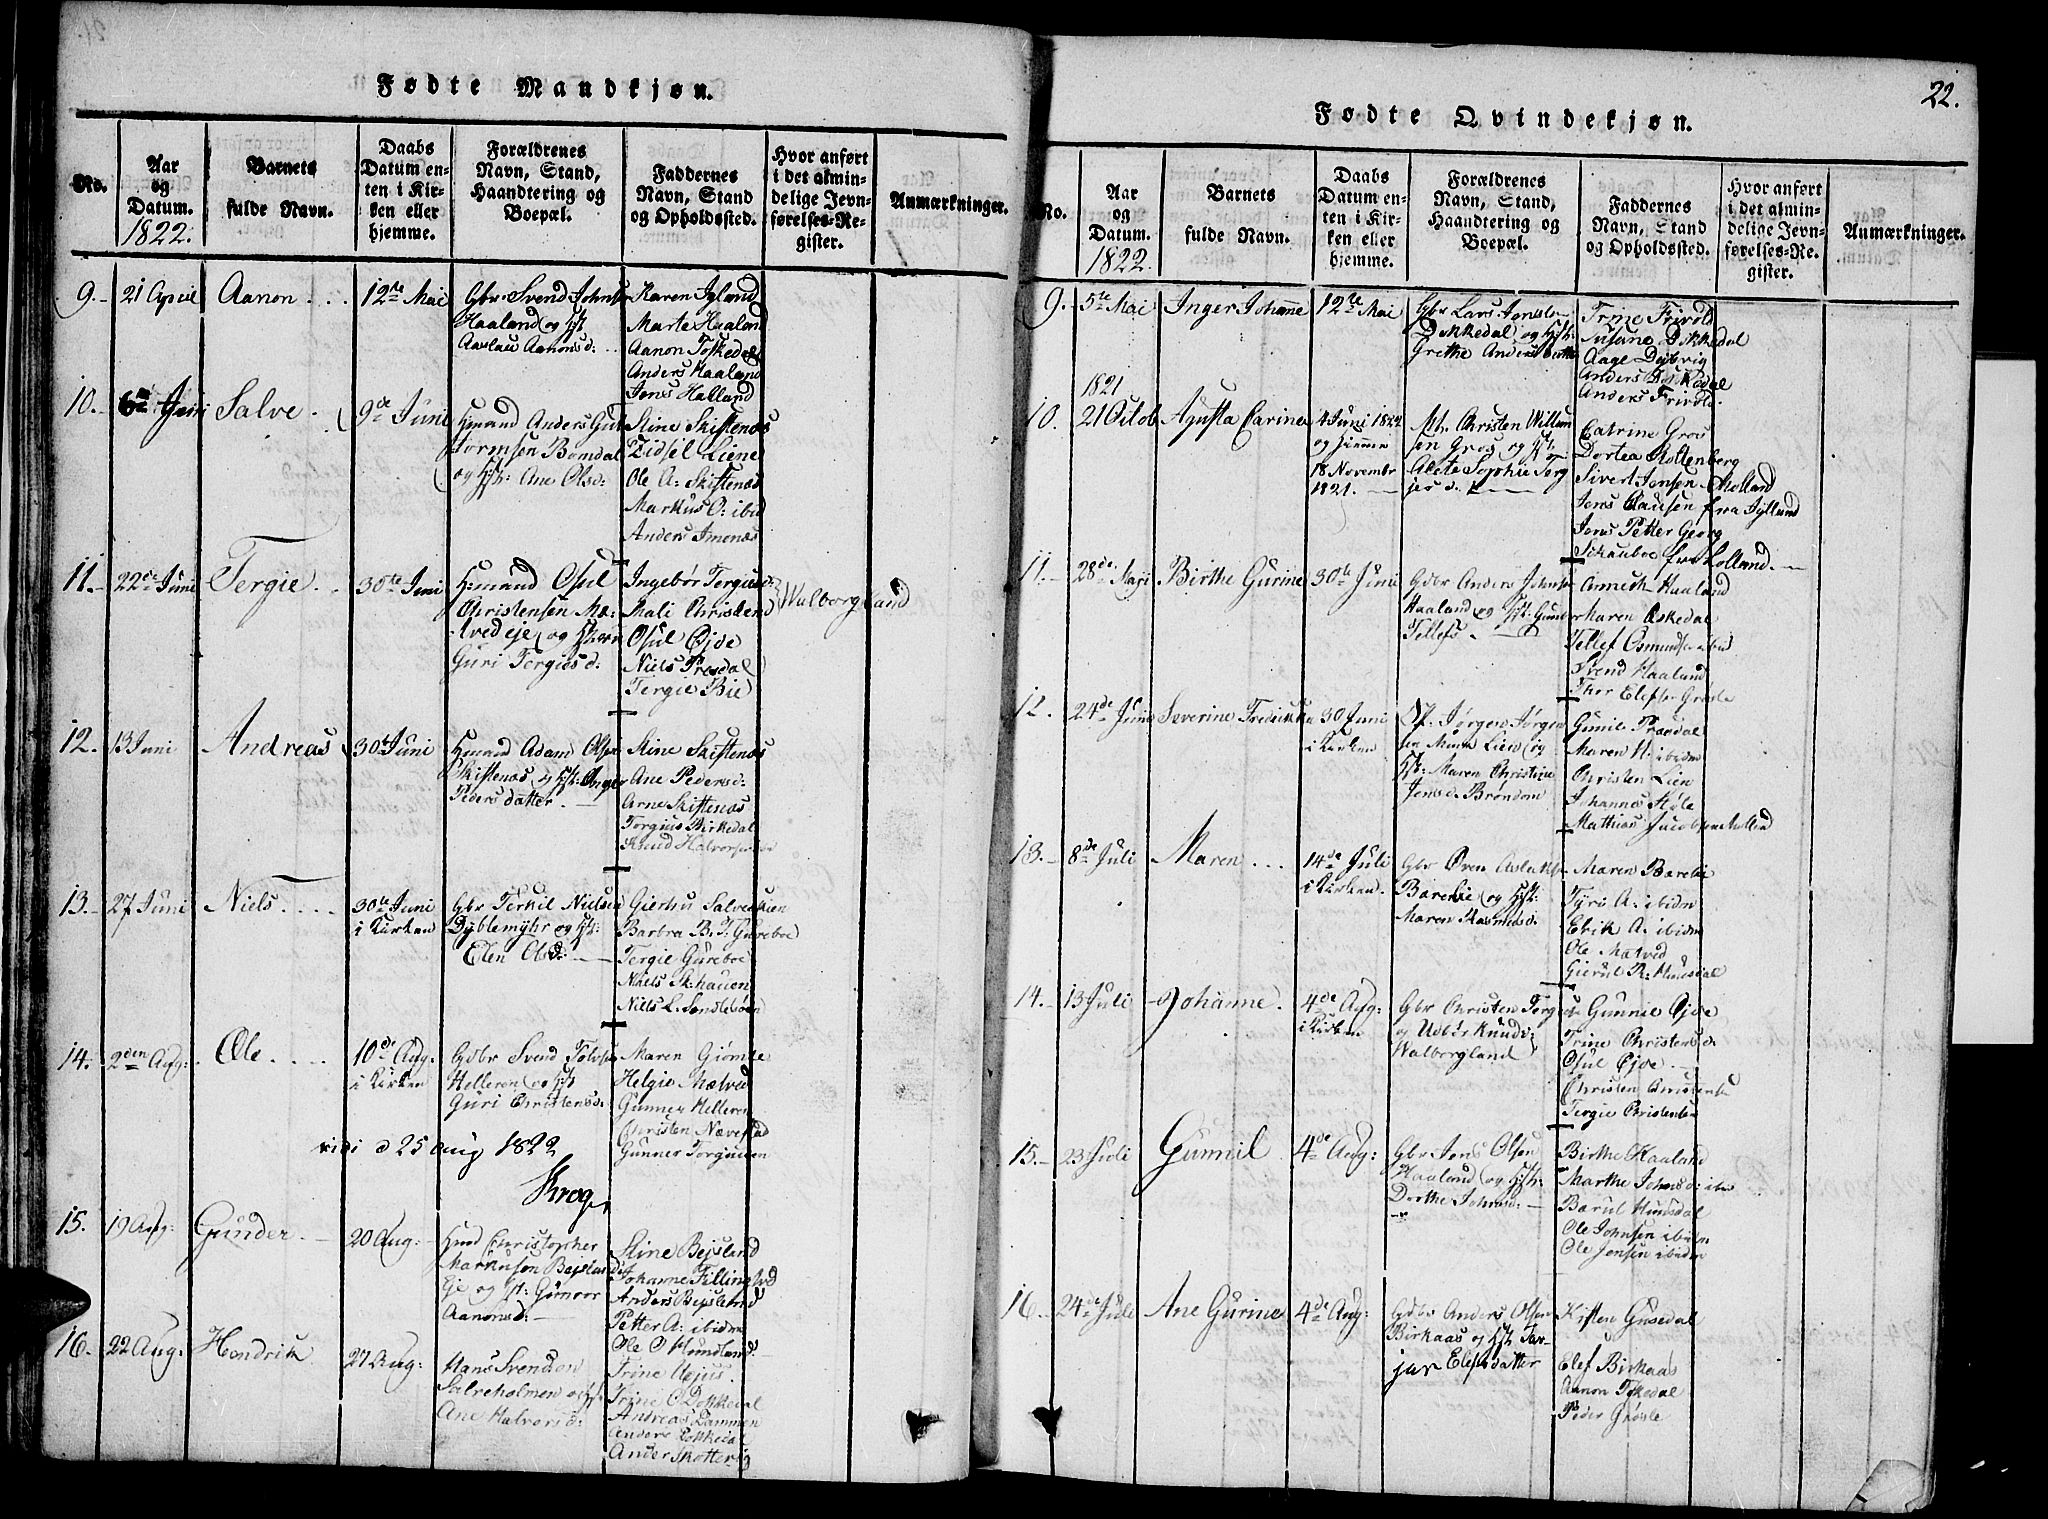 Fødte Mandkjøn.
No.
Aar og Datum.
1822.
Barnets fulde Navn.
Daabs Datum enten i Kirken eller hjemme.
Forældrenes Navn, Stand, Haandtering og Boepæl.
Faddernes Navn, Stand og Opholdssted.
Hvor anført i det almindelige Jevnførelses-Register.
Anmærkninger.
9. 21 April Aanon 12te Mai
Gbr. Svend Johns
Haaland og Hst
Aaslau Aanonsd:
Karen Igland
Marte Haaland
Aanon Toskedal
Anders Haaland
Jens Halland
10. Juni Salve 9de Juni
Hmand Anders Gut
tormsen Bomdal
og Hst: Ane Olsd:
Stine Skiftenæs
Zidsel Liene
Ole A: Skiftenæs
Markus O: ibid
Anders Imenæs
11. 22de Juni Tergie 30te Juni
Hmand Osul
Christensen
og
Guri Tergiesd:
Ingebor Tergiesd:
Mali Christens
Osul Ejde
Niels Presdal
Tergie Bie
Walborgland
12. 13 Juni Andreas 30te Juni
Hmand Adam Olsen
Skiftenæs og Hst: Inger
Pedersdatter.
Stine Skiftenæs
Ane Pedersd:
Arne Skiftenæs
Torgius Birkedal
Knud Halvorsen
13. 27 Juni Niels 30te Juni
i Kirken
Gbr Terkil Nielsen
Dyblemyhr og Hst:
Elen Olsd:
Barbra B. T. Gureboe
Tergie Gureboe
Niels Skhauen
Niels L. Sendlesøen
14. 2den Aug: Ole 10de Aug:
i Kirken
Gdbr Svend Tolvsen
Helleren og Hst
Guri Christensd:
Maren Giømle
Helgie Mætved
Gunner Helleren
Christen Nævestad
Gunner Torgusen
vidi d 25 Aug 1822
Krog
15. 19 Aug: Gunder 20 Aug:
Hmd Christopher
Markusen Bejsland
Eje og Hst: Gunvor
Aanonsd:
Stine Bejsland
Johanne Tellingstvd
Anders Bejsland
Petter A: ibidm
Ole O Hunsland
16. 22 Aug: Hendrik 27 Aug:
Hans Svendsen
Salreholmen og Hst
Ane Halvorsd:
Trine
Trine O Dokkedal
Andreas Dammen
Anders Dokkedal
Anders Kotterig
22.
Fødte Qvindekjøn.
No.
Aar og Datum.
1822.
Barnets fulde Navn.
Daabs Datum enten i Kirken eller hjemme.
Forældrenes Navn, Stand, Haandtering og Boepæl.
Faddernes Navn, Stand og Opholdssted.
Hvor anført i det almindelige Jevnførelses-Register.
Anmærkninger.
9. 5te Mai Inger Johanne 12te Mai
Gbr Lars Jensen
Dokkedal og Hst:
Grethe Andersdatter
Trine Frivold
Susane Dokkedal
Aage Dybvig
Anders Dokkedal
Anders Frivold.
1821
10. 21 Octob Agusta Carine 4 Juni 1822
og hjemme
18 Novembr
1821.
Christen Willum
sen Gros og Hst
Alete Sophie
Catrine Gros
Dortea Moltenberg
Sivert Jensen Molland
Jens Clausen fra Jylland
Jens Petter Georg
Schauboe fra Lolland.
11. 28de Maji Birthe Gurine 30te Juni
Gdbr Anders Johnsen
Haaland og Hst: Gunder
Tellefs.
Annech Haaland
Maren Oskedal
Tellef Osmundsen ibid
Svend Haaland
Thor Elefsen Grøsle
12. 24de Juni Severine Fredrikke 30 Juni
i Kirken
Jørgen Jørgen
sen Lien og
Hst: Maren Christine
Jensd. Brøndom
Gunil Præsdal
Maren N: ibidm
Christen Lien
Johannes Støle
Mathias Jacobsen Molland
13. 8de Juli Maren 14de Juli
i Kirken.
Gbr Øven Aslaks
Barelie og Hst:
Maren Rasmusd:
Maren Barelie
Tyri A. ibidm
Erik A. ibidm
Ole Mætved
Gierul R: Hunsdal
14. 13 Juli Johanne. 4de Aug:
i Kirken
Gbr Christen Tergies
og Udbør Knuds:
Walborgland
Gunnie Ejde
Trine Christensd:
Osul Ejde
Christen Christensen
Tergie Christensen
15. 23 Juli Gunnil 4de Aug:
Gbr Jens Olsen
Haaland og Hst:
Dorthe Johnsd:
Birthe Haaland
Marthe Johnsd: ibid
Barul Hunsdal
Ole Johnsen ibidm
Ole Jensen ibidm
16. 24de Juli Ane Gurine 4de Aug:
Gdbr Anders Olsen
Birkaas og Hst Tar-
jer Elefsdatter
Kisten Gusedal
Elef Birkaas
Aanon Toskedal
Peder Grøsle